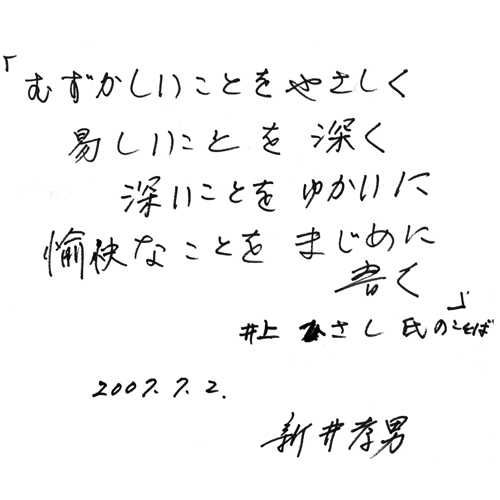 「むずかしいことをやさしく
易しいことを深く
深いことをゆかいに
愉快なことをまじめに
書く」
井上ひさし氏のことば
2007.7.2.
新井孝男